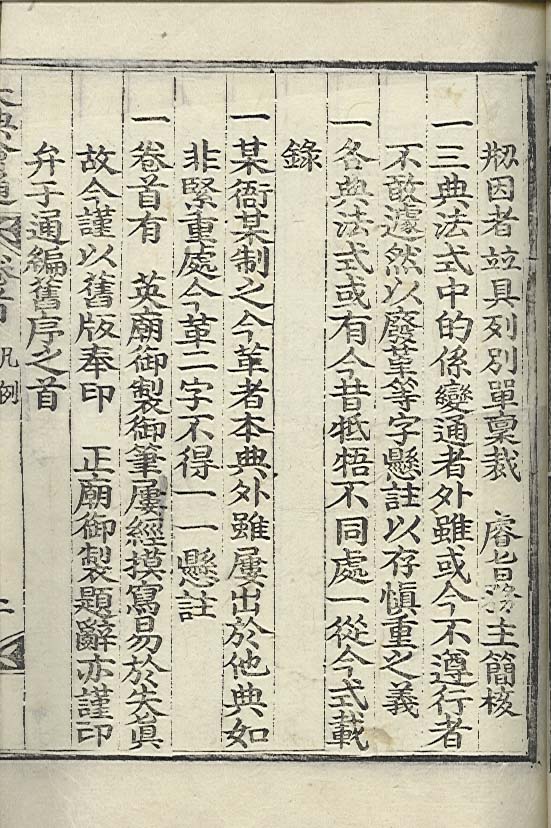 刱因者竝具列別單稟裁 睿旨務主簡核
一三典法式中的係變通者外雖或今不遵行者
不敢遽然以廢革等字懸註以存愼重之義
一各典法式或有今昔牴牾不同處一從今式載
錄
一某衙某制之今革者本典外雖屢出於他典如
非緊重處今革二字不得一一懸註
一卷首有 英廟御製御筆屢經摸寫易於失眞
故今謹以舊版奉印 正廟御製題辭亦謹印
弁于通編舊序之首
凡例